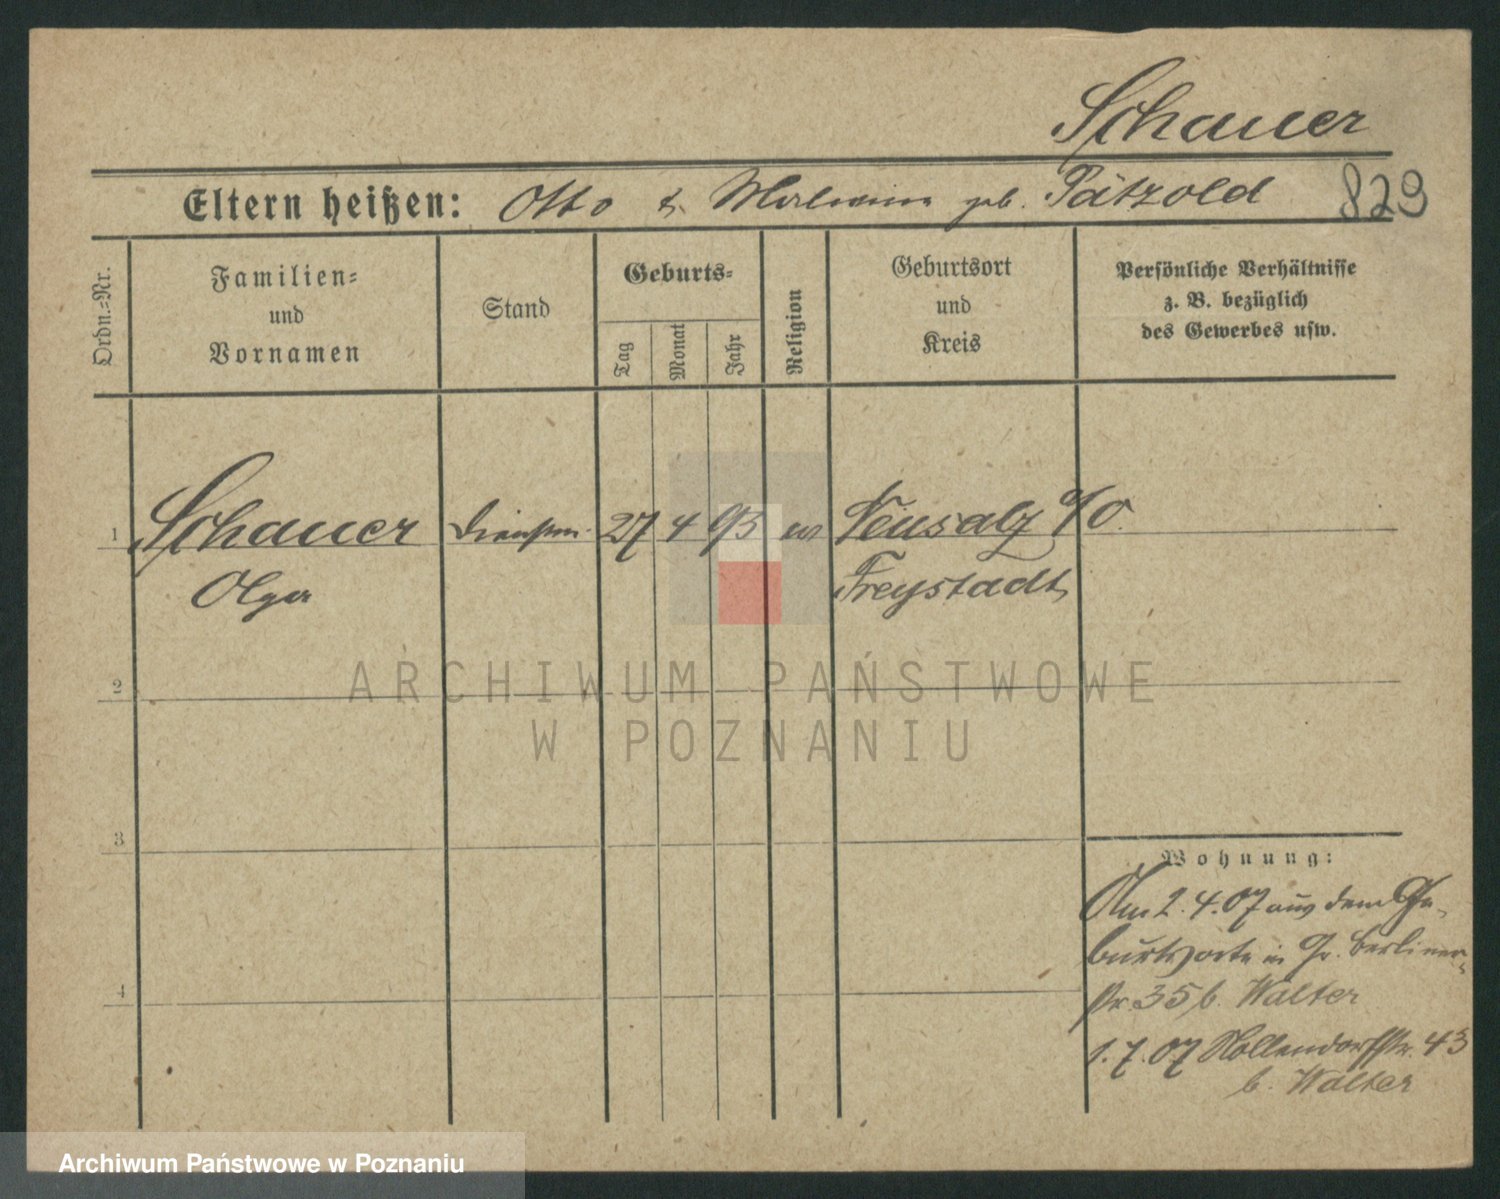 Schauer
Eltern heißen: Otto u. geb. Pätzold 829
Ordn.-Nr.
Familien-
und
Vornamen
Stand
Geburts-
Tag
Monat
Jahr
Religion
Geburtsort
und
Kreis
Persönliche Verhältnisse
z. B. bezüglich
des Gewerbes usw.
1 Schauer Dienstm. 27 4 93 ev Neusalz a/O.
Olga Freystadt
2
3
4
Wohnung:
Am 2.4.07 aus dem Ge-
burtsorte in Gr. Berliner-
str. 35 b. Walter
1.7.07 Nollendorfstr. 43
b. Walter
ARCHIWUM PAŃSTWOWE
W POZNANIU
Archiwum Państwowe w Poznaniu